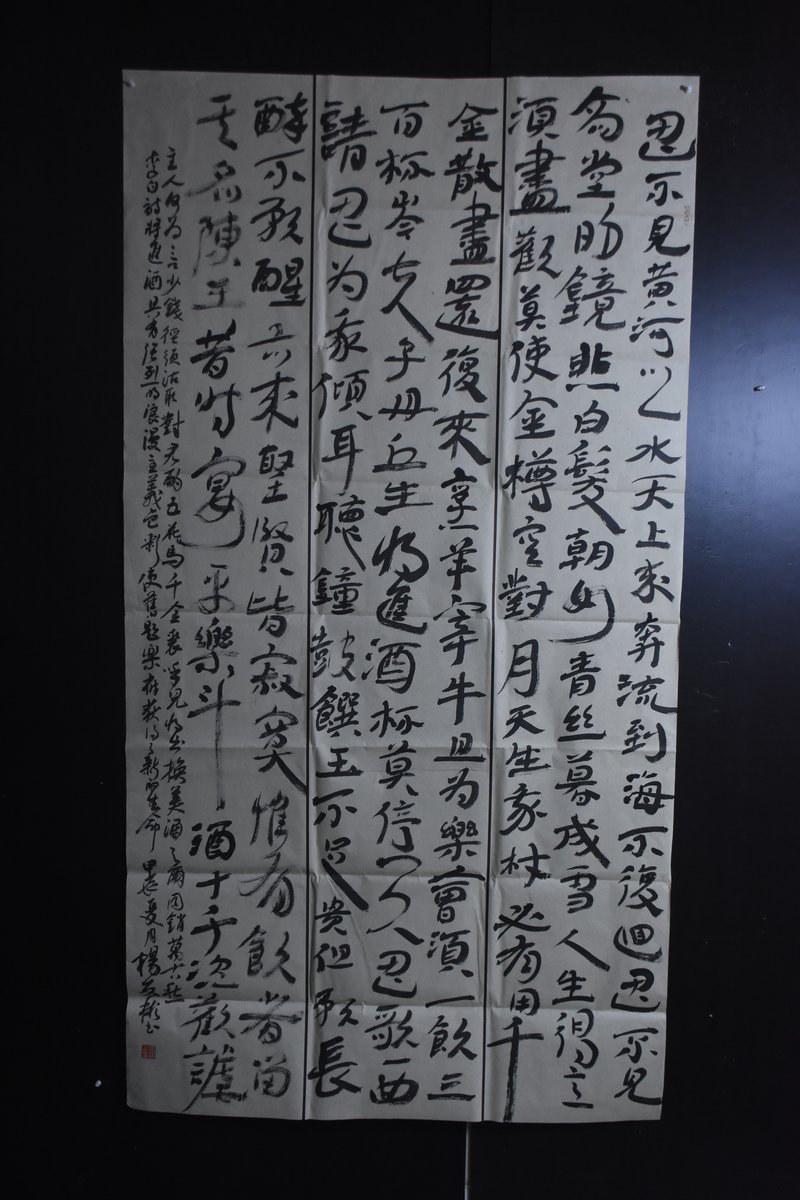 君不見黃河之水天上來奔流到海不復迴君不見
高堂明鏡悲白髮朝如青絲暮成雪人生得意
須盡歡莫使金樽空對月天生我材必有用千
金散盡還復來烹羊宰牛且為樂會須一飲三
百杯岑夫子丹丘生將進酒杯莫停與君歌一曲
請君為我傾耳聽鐘鼓饌玉不足貴但願長
醉不願醒古來聖賢皆寂寞惟有飲者留
其名陳王昔時宴平樂斗酒十千恣歡謔
主人何為言少錢徑須沽取對君酌五花馬千金裘呼兒將出換美酒與爾同銷萬古愁
李白詩將進酒具有強烈的浪漫主義色彩使舊題樂府獲得了新的生命 甲辰夏月楊彬書